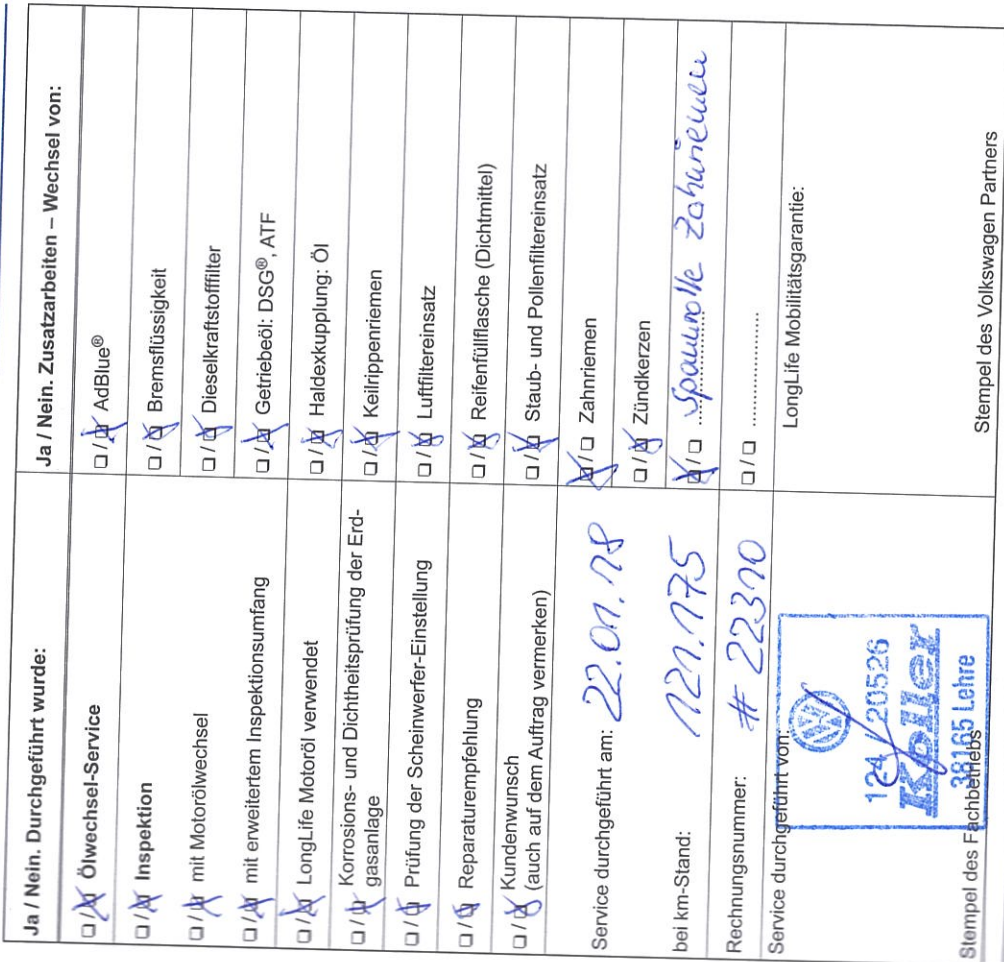 Ja / Nein. Durchgeführt wurde:
☐ / ☒ Ölwechsel-Service
☐ / ☒ Inspektion
☐ / ☒ mit Motorölwechsel
☐ / ☒ mit erweitertem Inspektionsumfang
☐ / ☒ LongLife Motoröl verwendet
☐ / ☒ Korrosions- und Dichtheitsprüfung der Erd-
gasanlage
☐ / ☒ Prüfung der Scheinwerfer-Einstellung
☐ / ☒ Reparaturempfehlung
☐ / ☒ Kundenwunsch
(auch auf dem Auftrag vermerken)
Service durchgeführt am: 22.01.18
bei km-Stand: 121.175
Rechnungsnummer: # 22310
Service durchgeführt von:
VW
124 / 20526
Koller
38165 Lehre
Stempel des Fachbetriebs
Ja / Nein. Zusatzarbeiten – Wechsel von:
☐ / ☒ AdBlue®
☐ / ☒ Bremsflüssigkeit
☐ / ☒ Dieselkraftstofffilter
☐ / ☒ Getriebeöl: DSG®, ATF
☐ / ☒ Haldexkupplung: Öl
☐ / ☒ Keilrippenriemen
☐ / ☒ Luftfiltereinsatz
☐ / ☒ Reifenfüllflasche (Dichtmittel)
☐ / ☒ Staub- und Pollenfiltereinsatz
☒ / ☐ Zahnriemen
☐ / ☒ Zündkerzen
☒ / ☐ Spannrolle Zahnriemen
☐ / ☐ ..................
LongLife Mobilitätsgarantie:
Stempel des Volkswagen Partners